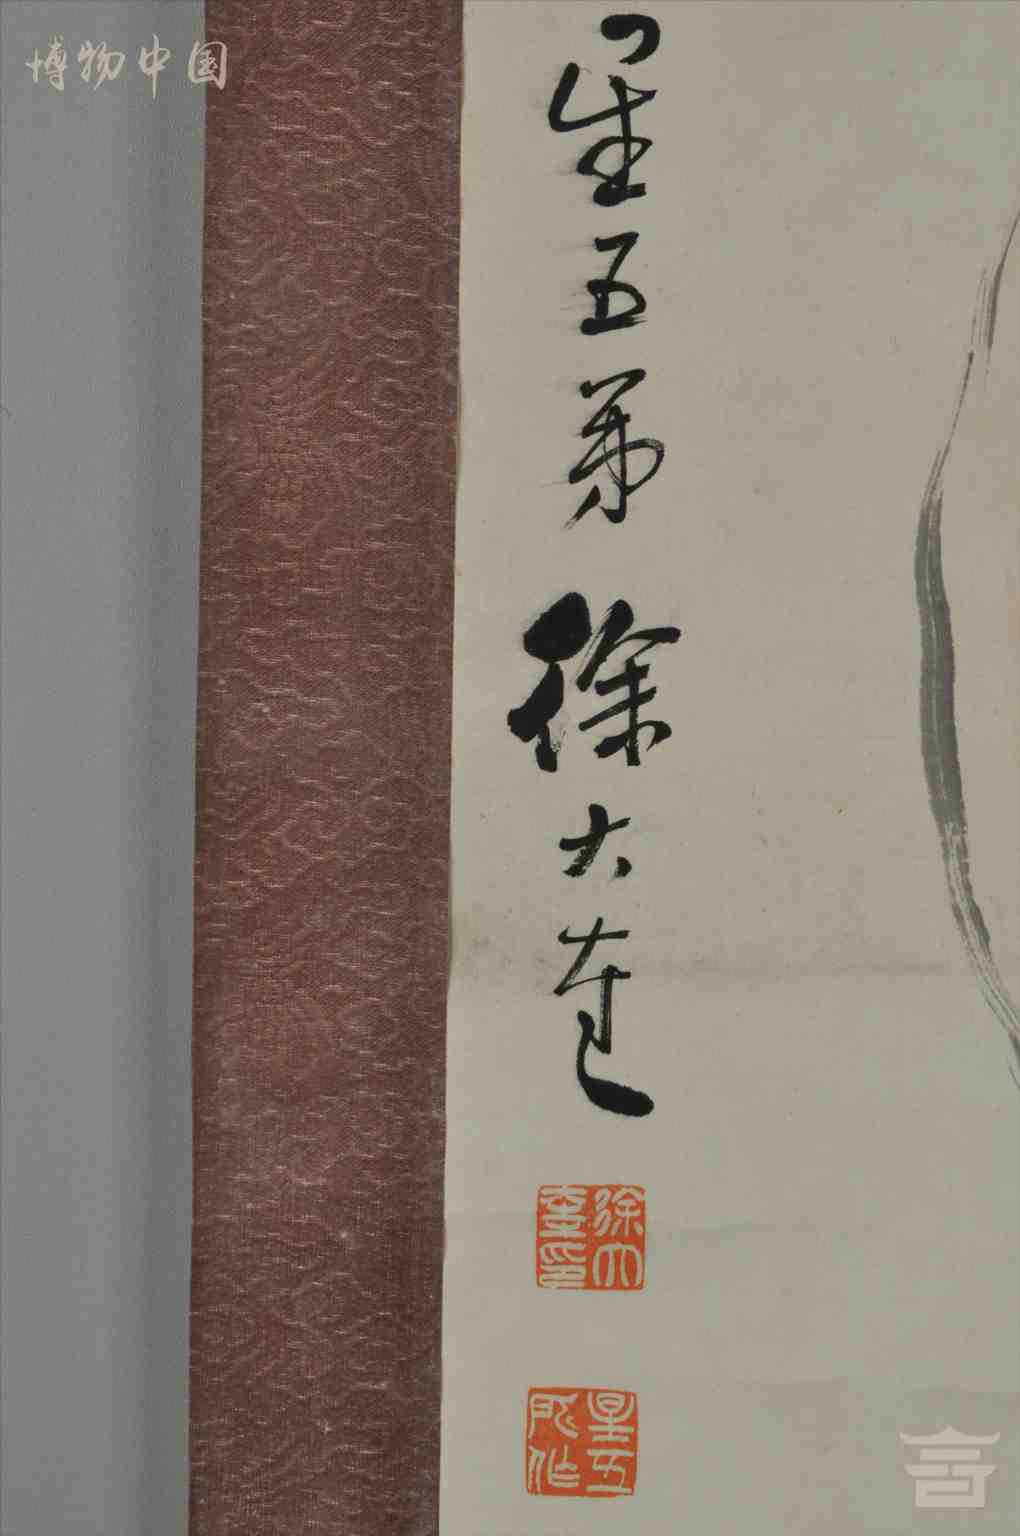 博物中国
星五弟徐大
徐大
印
星五
作